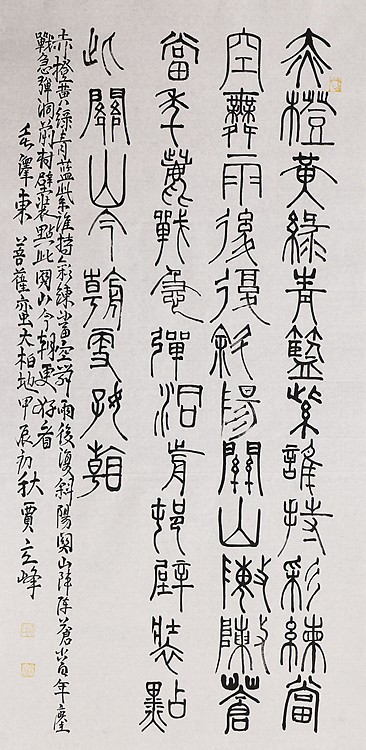 赤橙黃綠青藍紫誰持彩練當
空舞雨後復斜陽關山陣陣蒼
當年鏖戰急彈洞前村壁裝點
此關山今朝更好看
赤橙黃綠青藍紫誰持彩練當空舞雨後復斜陽関山陣陣蒼當年鏖
戰急彈洞前村壁裝點此関山今朝更好看
毛澤東 菩薩蠻大柏地 甲辰初秋 賈立峰